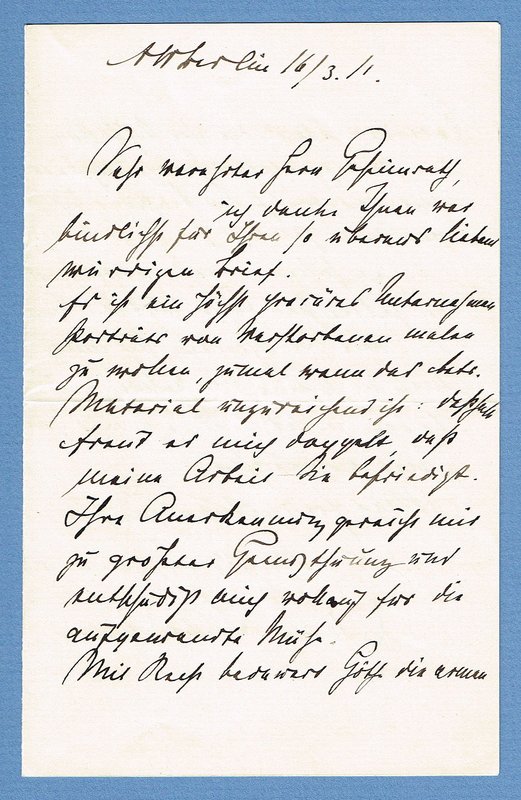 Berlin 16/3. 11.
Sehr verehrter Herr Geheimrath,
ich danke Ihnen ver
bindlichst für Ihren so überaus liebens
würdigen Brief.
Es ist ein höchst precäres Unternehmen
Porträts von Verstorbenen malen
zu wollen, zumal wenn das betr.
Material unzureichend ist: deßhalb
freut es mich doppelt, daß
meine Arbeit Sie befriedigt.
Ihre Anerkennung gereicht mir
zu großer Genugthuung und
entschädigt mich vollauf für die
aufgewandte Mühe.
Mit Recht bedauert Göthe die armen